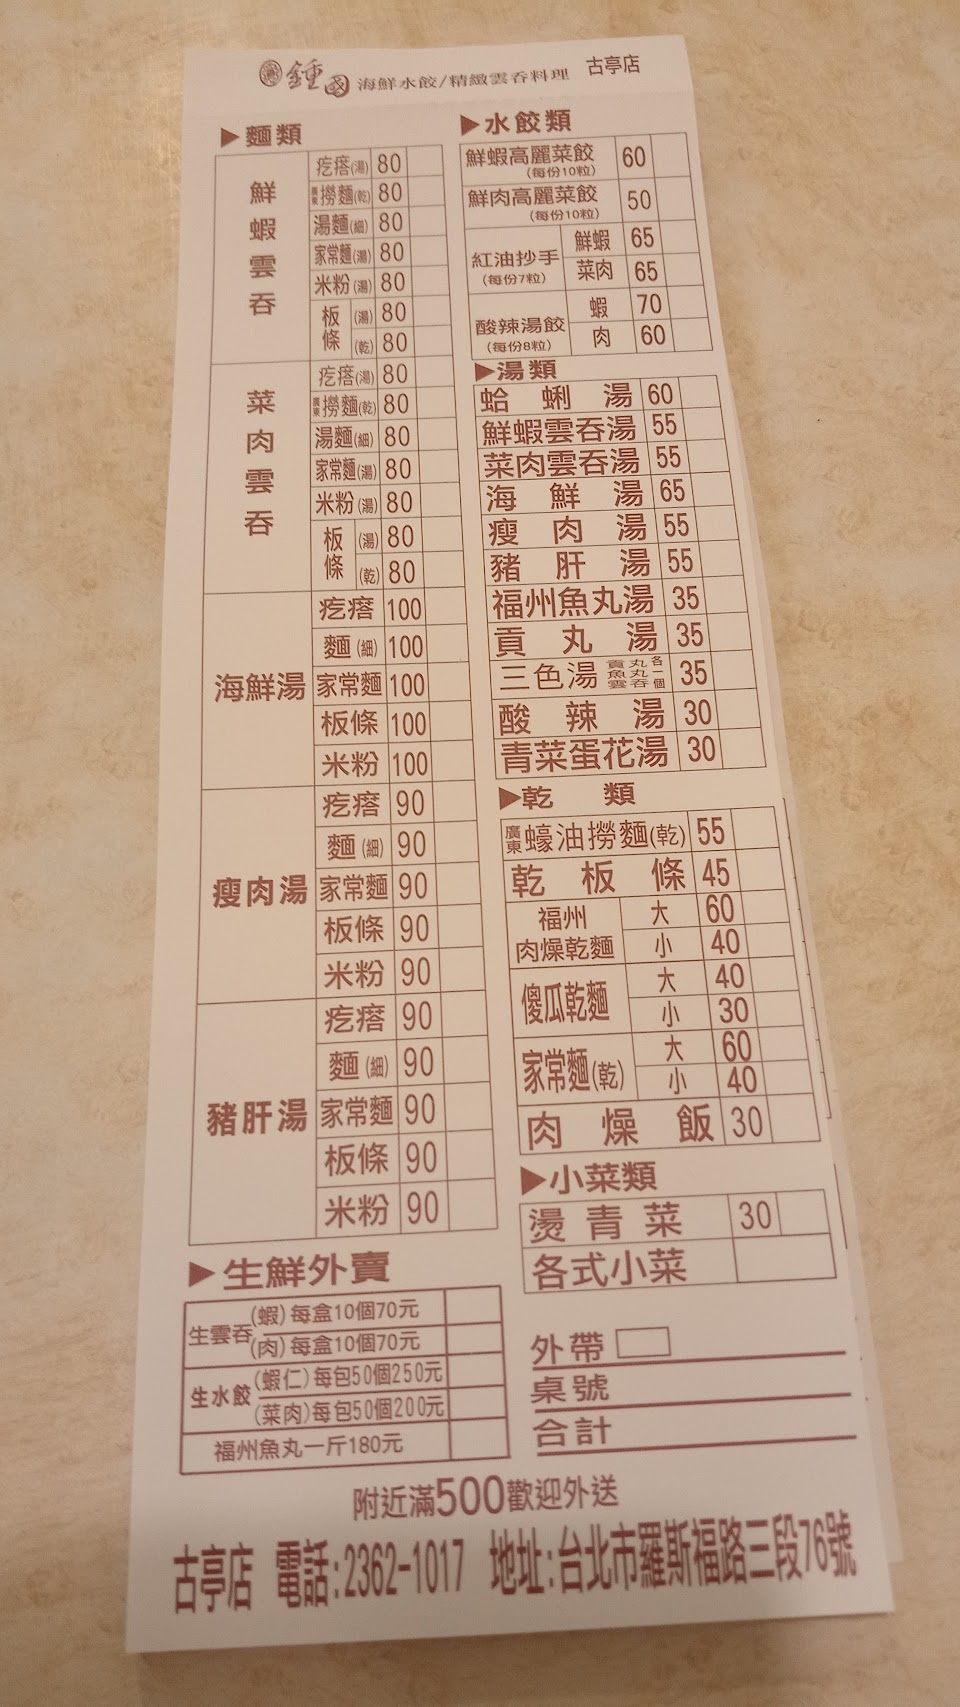 鍾國 海鮮水餃/精緻雲吞料理 古亭店
▶麵類
鮮蝦雲吞
疙瘩(湯) 80
廣東撈麵(乾) 80
湯麵(細) 80
家常麵(湯) 80
米粉(湯) 80
板條 (湯) 80
(乾) 80
菜肉雲吞
疙瘩(湯) 80
廣東撈麵(乾) 80
湯麵(細) 80
家常麵(湯) 80
米粉(湯) 80
板條 (湯) 80
(乾) 80
海鮮湯
疙瘩 100
麵(細) 100
家常麵 100
板條 100
米粉 100
瘦肉湯
疙瘩 90
麵(細) 90
家常麵 90
板條 90
米粉 90
豬肝湯
疙瘩 90
麵(細) 90
家常麵 90
板條 90
米粉 90
▶生鮮外賣
生雲吞 (蝦)每盒10個70元
(肉)每盒10個70元
生水餃 (蝦仁)每包50個250元
(菜肉)每包50個200元
福州魚丸一斤180元
▶水餃類
鮮蝦高麗菜餃 60
(每份10粒)
鮮肉高麗菜餃 50
(每份10粒)
紅油抄手 鮮蝦 65
(每份7粒) 菜肉 65
酸辣湯餃 蝦 70
(每份8粒) 肉 60
▶湯類
蛤蜊湯 60
鮮蝦雲吞湯 55
菜肉雲吞湯 55
海鮮湯 65
瘦肉湯 55
豬肝湯 55
福州魚丸湯 35
貢丸湯 35
三色湯 貢丸魚丸雲吞各一個 35
酸辣湯 30
青菜蛋花湯 30
▶乾類
廣東蠔油撈麵(乾) 55
乾板條 45
福州肉燥乾麵 大 60
小 40
傻瓜乾麵 大 40
小 30
家常麵(乾) 大 60
小 40
肉燥飯 30
▶小菜類
燙青菜 30
各式小菜
外帶
桌號
合計
附近滿500歡迎外送
古亭店 電話:2362-1017 地址:台北市羅斯福路三段76號